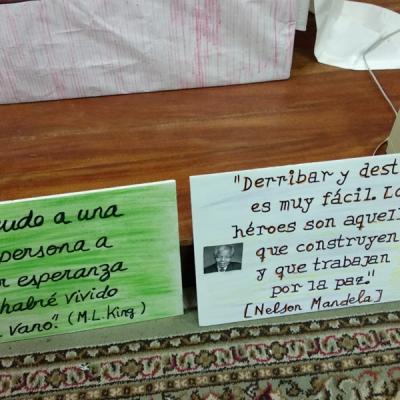 udo a una
persona a
r esperanza
habré vivido
vano." (M.L. King)
"Derribar y dest
es muy fácil. Lo
héroes son aquell
que construyen
y que trabajan
por la paz."
[Nelson Mandela]